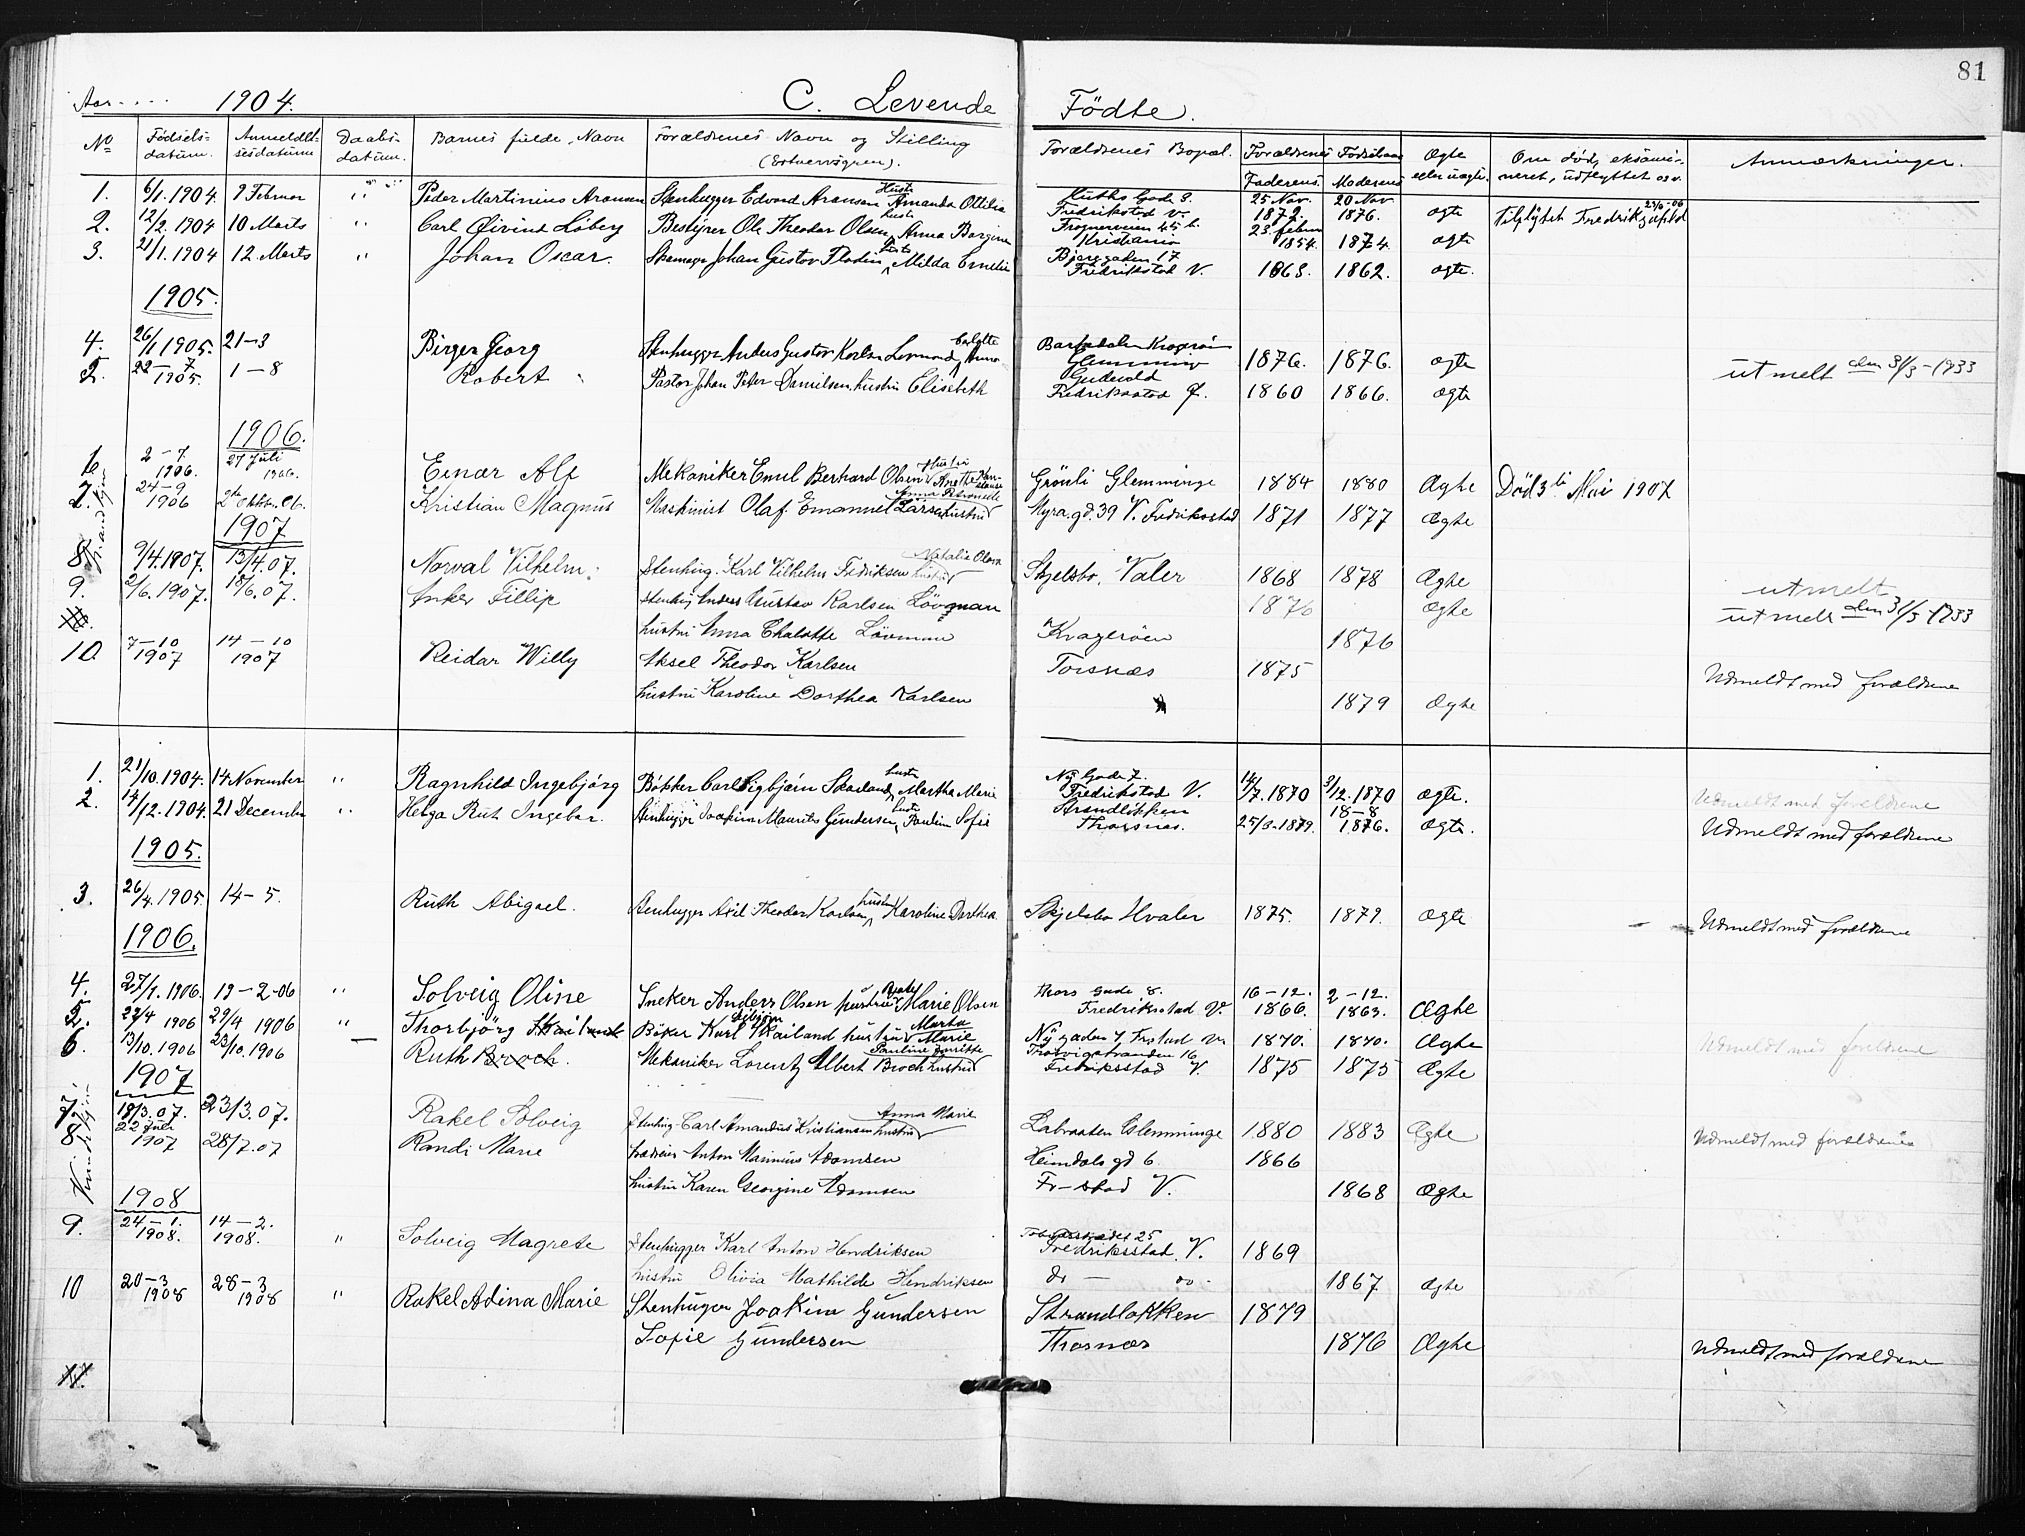 81
Aar.... 1904. C. Levende Födte.
No Födsels-datum. Anmeldelsesdatum Daabs-datum. Barnets fulde Navn Forældrenes Navn og Stilling Forældrenes Bopæl. Forældrenes Födselsaar Ægte eller uægte. Om död, eksami-neret, udflyttet osv. Anmærkninger.
Faderens Moderens
1. 6/1 1904. 9 Februar " Peder Martinius Aronsen Stenhugger Edvard Aronsen Hustr Amanda Ottilia Huths Gade 8. Fredrikstad V. 25 Nov. 1872. 20 Nov 1876. ægte Tilflytet Fredrikshald
2. 12/2 1904 10 Marts " Carl Öivind Löberg Bestyrer Ole Theodor Olsen, hustr Anna Bergine Frognerveien 45 b. Kristiania 1854. 1874. ægte
3. 21/1. 1904 12. Marts " Johan Oscar. Johan Gustov Flodin Hustr Milda Emelie Fredrikstad V. 1863. 1862. ægte.
1905.
4. 26/1 1905. 21-3 Birger Georg Stenhugger Anders Gustov Karlsen Lovmand, Anna Glemminge 1876. 1876. ægte utmelt den 31/3-1933
5. 22-7 1905. 1-8 Robert Pastor Johan Peter Danielsen, hustru Elisebeth Fredrikstad Ø. 1860 1866. ægte
1906.
6. 2-7. 1906. 27 Juli 1906. Einar Alf Mekaniker Emil Berhard Olsen Hustru Grönli Glemminge 1884 1880 Ægte Död 3die Mai 1907
7. 24-9 1906 Kristian Magnus Maskinist Olaf Emanuel Larsen hustru Anna Petronelle Myra.gd. 39 V. Fredriksstad 1871 1877 Ægte
1907
8 9/4.1907. 13/4.07. Norval Vilhelm. Stenhug. Karl Vilhelm Fredriksen hustru Natalie Olava Skjelsbo. Valer 1868 1878 Ægte
9. 2/6. 1907. 18/6. 07. Anker Fillip Stenhug Anders Gustav Karlsen Lövgman 1876 Ægte utmelt
utmelt den 31/3-1933
hustru Anna Chalotte Lövmann Kragerøen 1876
10. 7-10 1907 14-10 1907 Reidar Willy Aksel Theodor Karlsen Torsnæs 1875 Udmeldt med forældrene
hustru Karoline Dorthea Karlsen 1879 Ægte
1. 21/10. 1904. 14. November " Ragnhild Ingebjörg Bökker Carl Sigbjörn Skailand, hustr Martha Marie Ny Gade 7. Fredrikstad V. 14/7. 1870 3/12. 1870 ægte. Udmeldt med forældrene
2. 14/12. 1904. 21 December " Helga Rut Ingebor. Stenhugger Joakim Maurits Gundersen, hustr Paulin Sofie Strandlökken Thorsnæs. 25/3-1879. 18-8 1876. ægte. Udmeldt med forældrene
1905.
3. 26/4. 1905 14-5. Ruth Abigael. Stenhugger Axel Theodor Karlsen, hustru Karoline Dorthea Skjelsbo Hvaler 1875. 1879. ægte Udmeldt med forældrene
1906.
4. 27/1. 1906. 19-2-06 " Solveig Oline Sneker Anders Olsen hustru Marie Olsen Thors Gade 8. Fredriksstad V. 16-12. 1866. 2-12. 1863. Ægte
5. 22/4 1906 29/4 1906 " Thorbjörg Skailand Böker Karl Sigbjörn Skailand hustru Marta Marie Nygaden 7, Frstad V. 1870. 1870. Ægte Udmeldt med forældrene
6. 13/10. 1906 23/10. 1906 Ruth Broch. Mekaniker Lorentz Albert Broch hustru Fredriksstad V. 1875 1875 Ægte
1907
7. 18/3. 07. 23/3. 07. Rakel Solveig Stenhug. Carl Amandus Kristiansen hustru Anna Marie Labraaten Glemminge 1880 1883 Ægte Udmeldt med forældrene
8 22 Juli 1907 28/7. 07 Randi Marie Anton Marinius Adamsen Heimdals gd 6. 1866
hustru Karen Georgine Adamsen Fr-stad V. 1868 Ægte
1908
9. 24-1. 1908. 14-2. 1908. " Solveig Magrete Stenhugger Karl Anton Hendriksen Fredriksstad. V. 1869
hustru Olivia Mathilde Hendriksen do - do - 1867 Ægte
10 20-3 1908 28-3 1908 " Rakel Adina Marie Stenhugger Joakim Gundersen Strandlökken 1879
Sofie Gundersen Thorsnæs 1876 Ægte Udmeldt med forældrene
11.